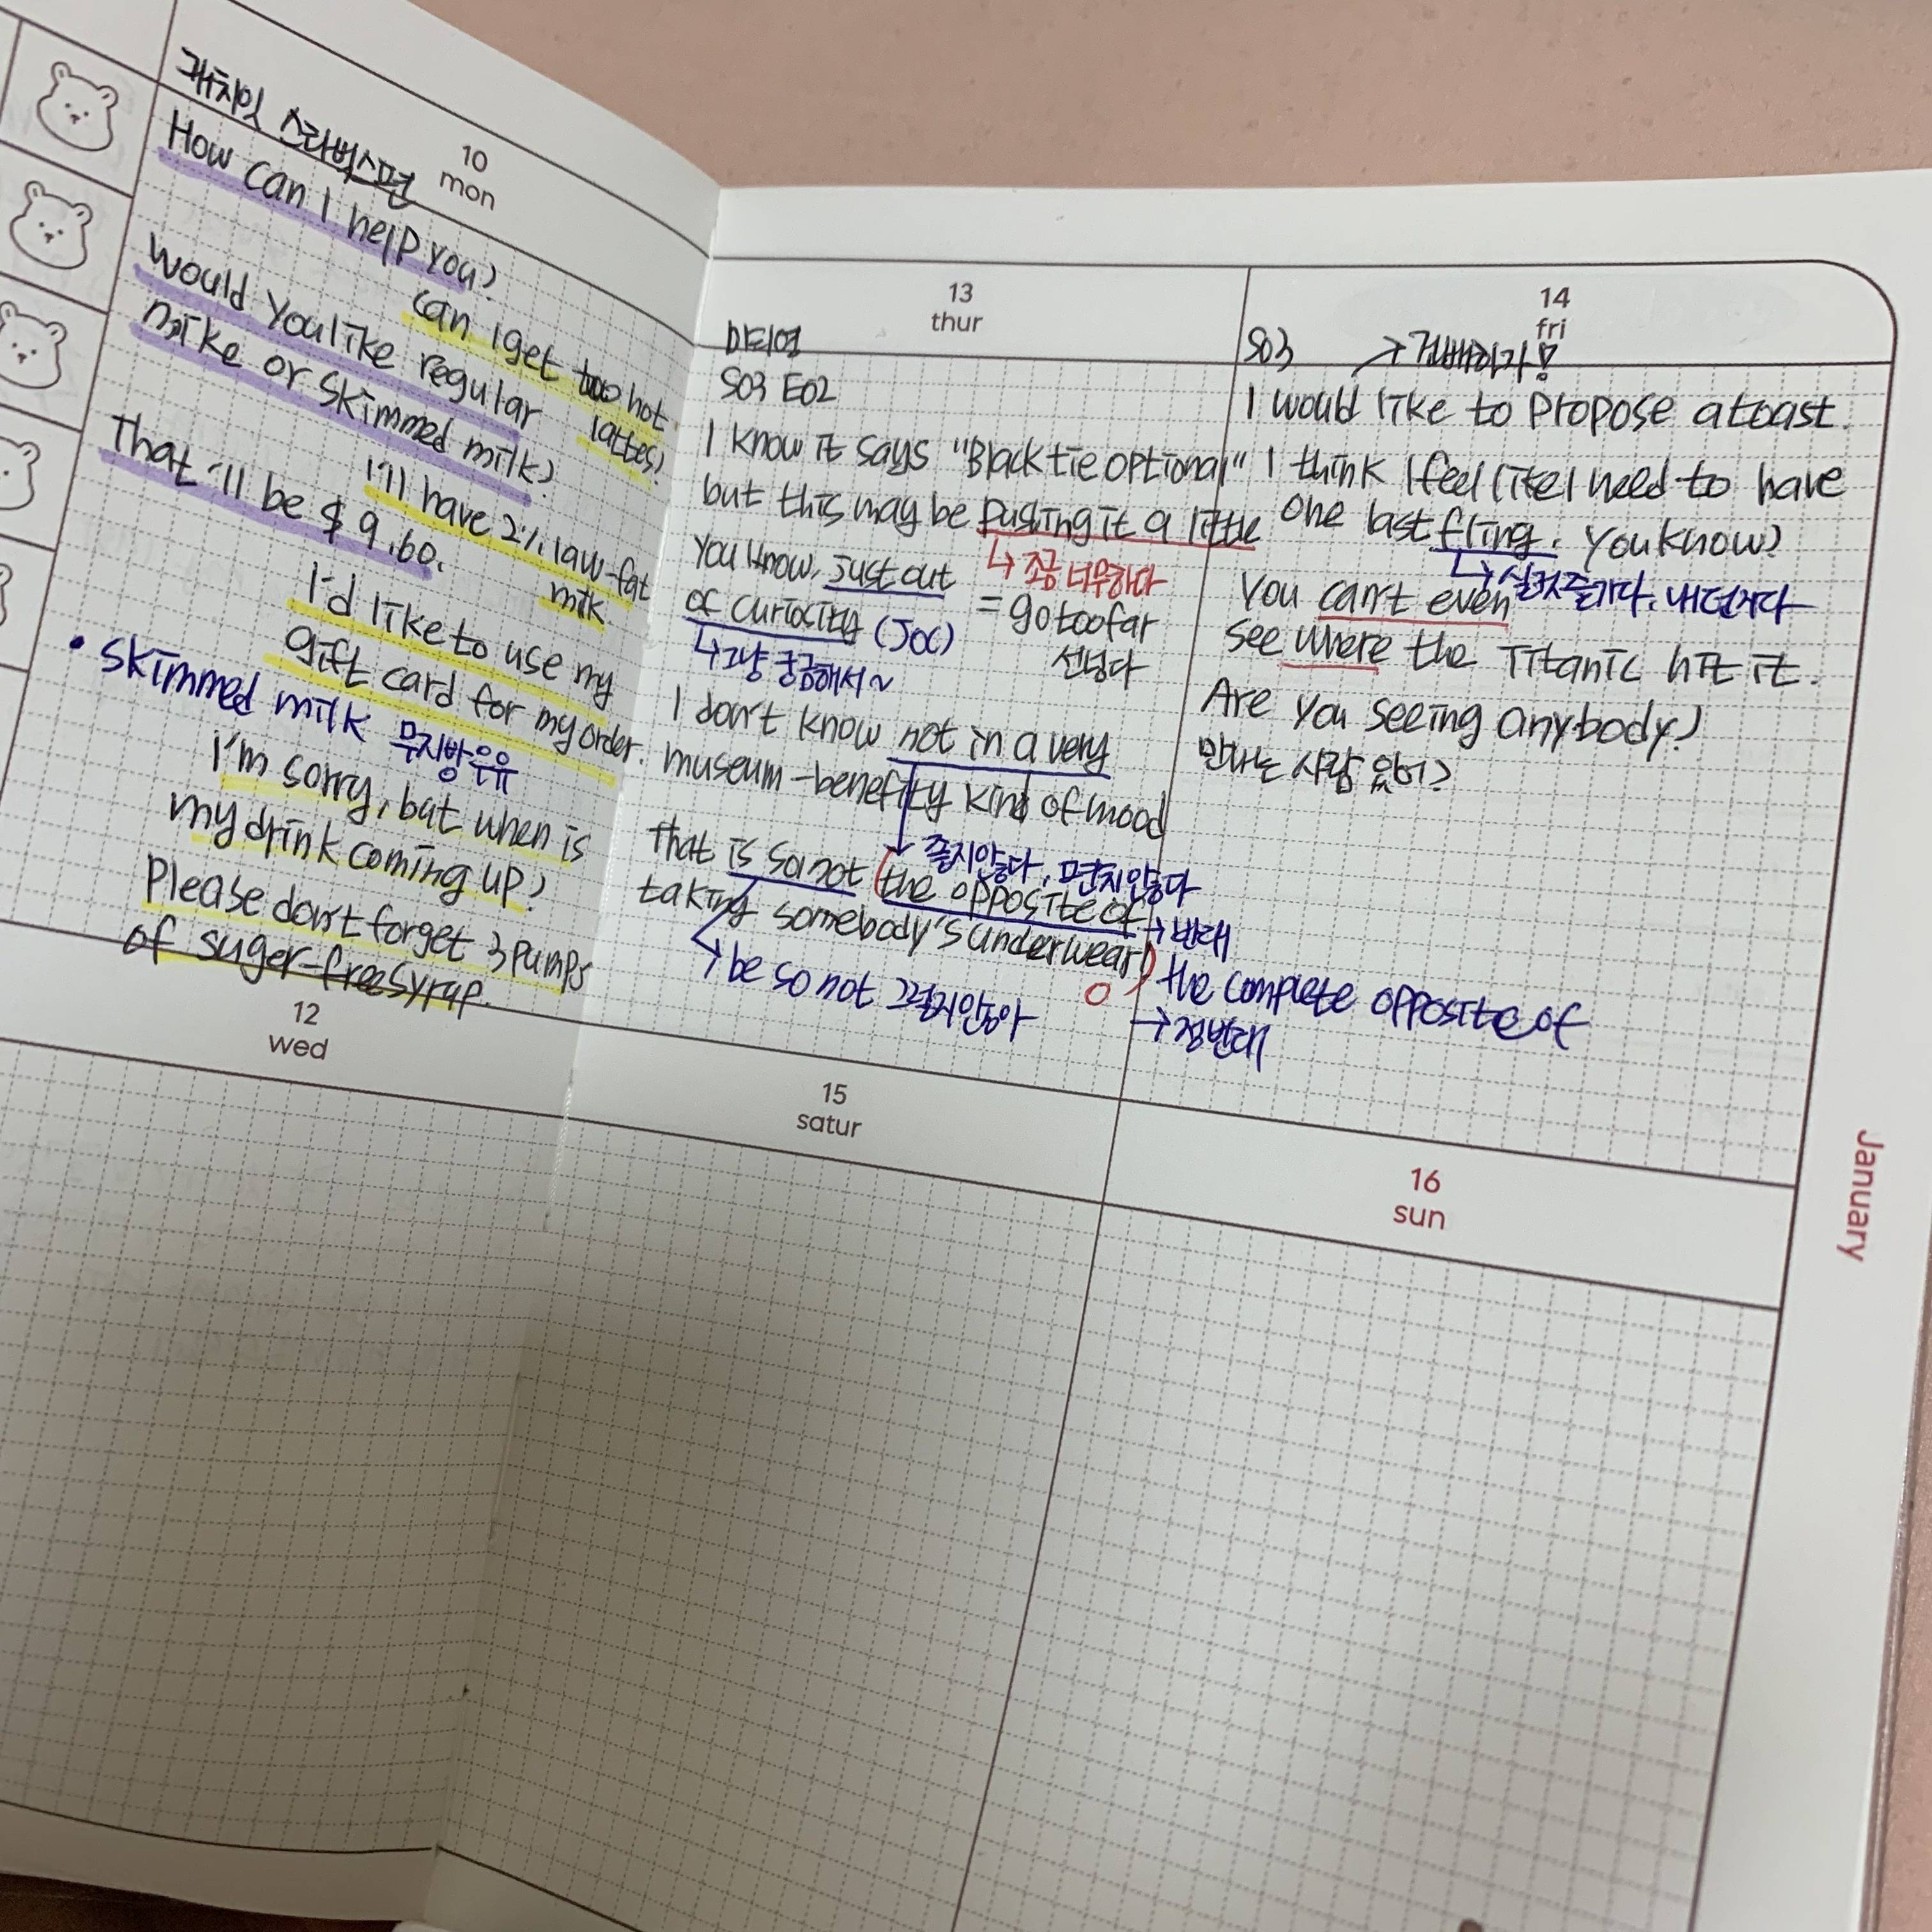 캐치잇 스타벅스편
10
mon
How can I help you?
Can I get two hot
lattes?
Would you like regular
milke or skimmed milk?
I'll have 2% law-fat
milk
That'll be $9.60.
I'd like to use my
gift card for my order.
• skimmed milk 무지방우유
I'm sorry, but when is
my drink coming up?
Please don't forget 3 pumps
of suger-free syrup.
12
wed
13
thur
마티영
S03 E02
I know it says "Black tie optional"
but this may be pushing it a little
↳ 조금 너무하다
= go too far
선넘다
You know, just out
of curiocity (JOC)
↳ 그냥 궁금해서~
I don't know not in a very
museum-benefity kind of mood
좋지않다, 편치않다
That is so not (the opposite of
→ 반대
taking somebody's underwear)
↳ be so not 그렇지않아
the complete opposite of
→ 정반대
14
fri
S03
→ 건배하자!
I would like to propose a toast.
I think I feel like I need to have
one last fling. you know?
↳ 실컷즐기다, 내던지다
You can't even
see where the Titanic hit it.
Are you seeing anybody?
만나는 사람 있어?
15
satur
16
sun
January